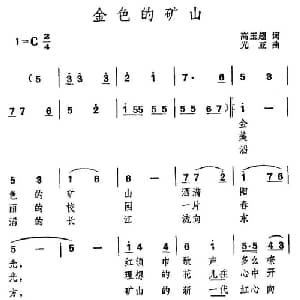 金色的矿山
1=C 2/4
高玉 词
光亚 曲
(5 3 3 3 3 1 2 2 2 2 7 7 6 5
7 7 6 2 2 2 1 55 5 5 5 5 6 7) 1 —
金
美
滔
5 3 1 6 5 5 3 1 7 6
色 的 矿 山 洒满 阳
丽 的 校 园 一片 春
滔 的 长 江 流向 东
5 — 1 4 4 6 6 5 3
光， 红领 巾歌 声 多么
光， 理想 的花 儿在 心中 开
方， 矿山 的新 一代 红心 向